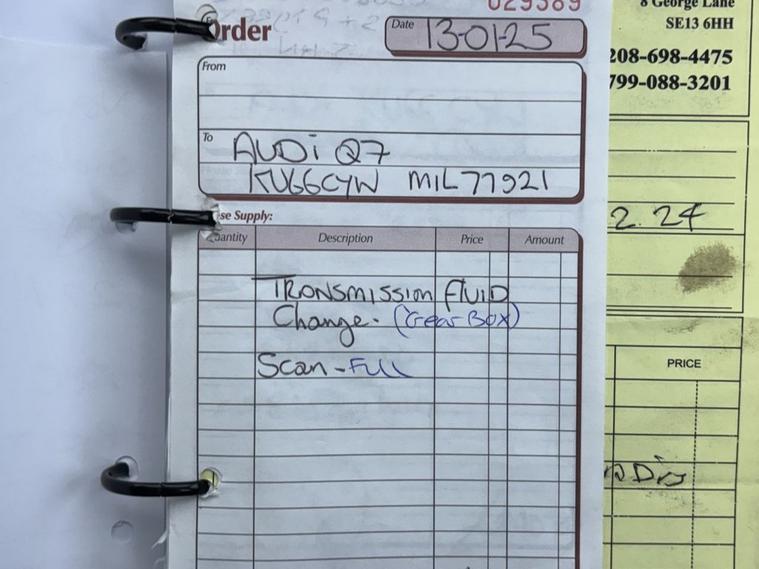 029389
Order
Date 13-01-25
From
To AUDI Q7
KU66CYW MIL77921
se Supply:
uantity Description Price Amount
TRANSMISSION FLUID
Change. (Gear Box)
Scan - Full
8 George Lane
SE13 6HH
208-698-4475
799-088-3201
2.24
PRICE